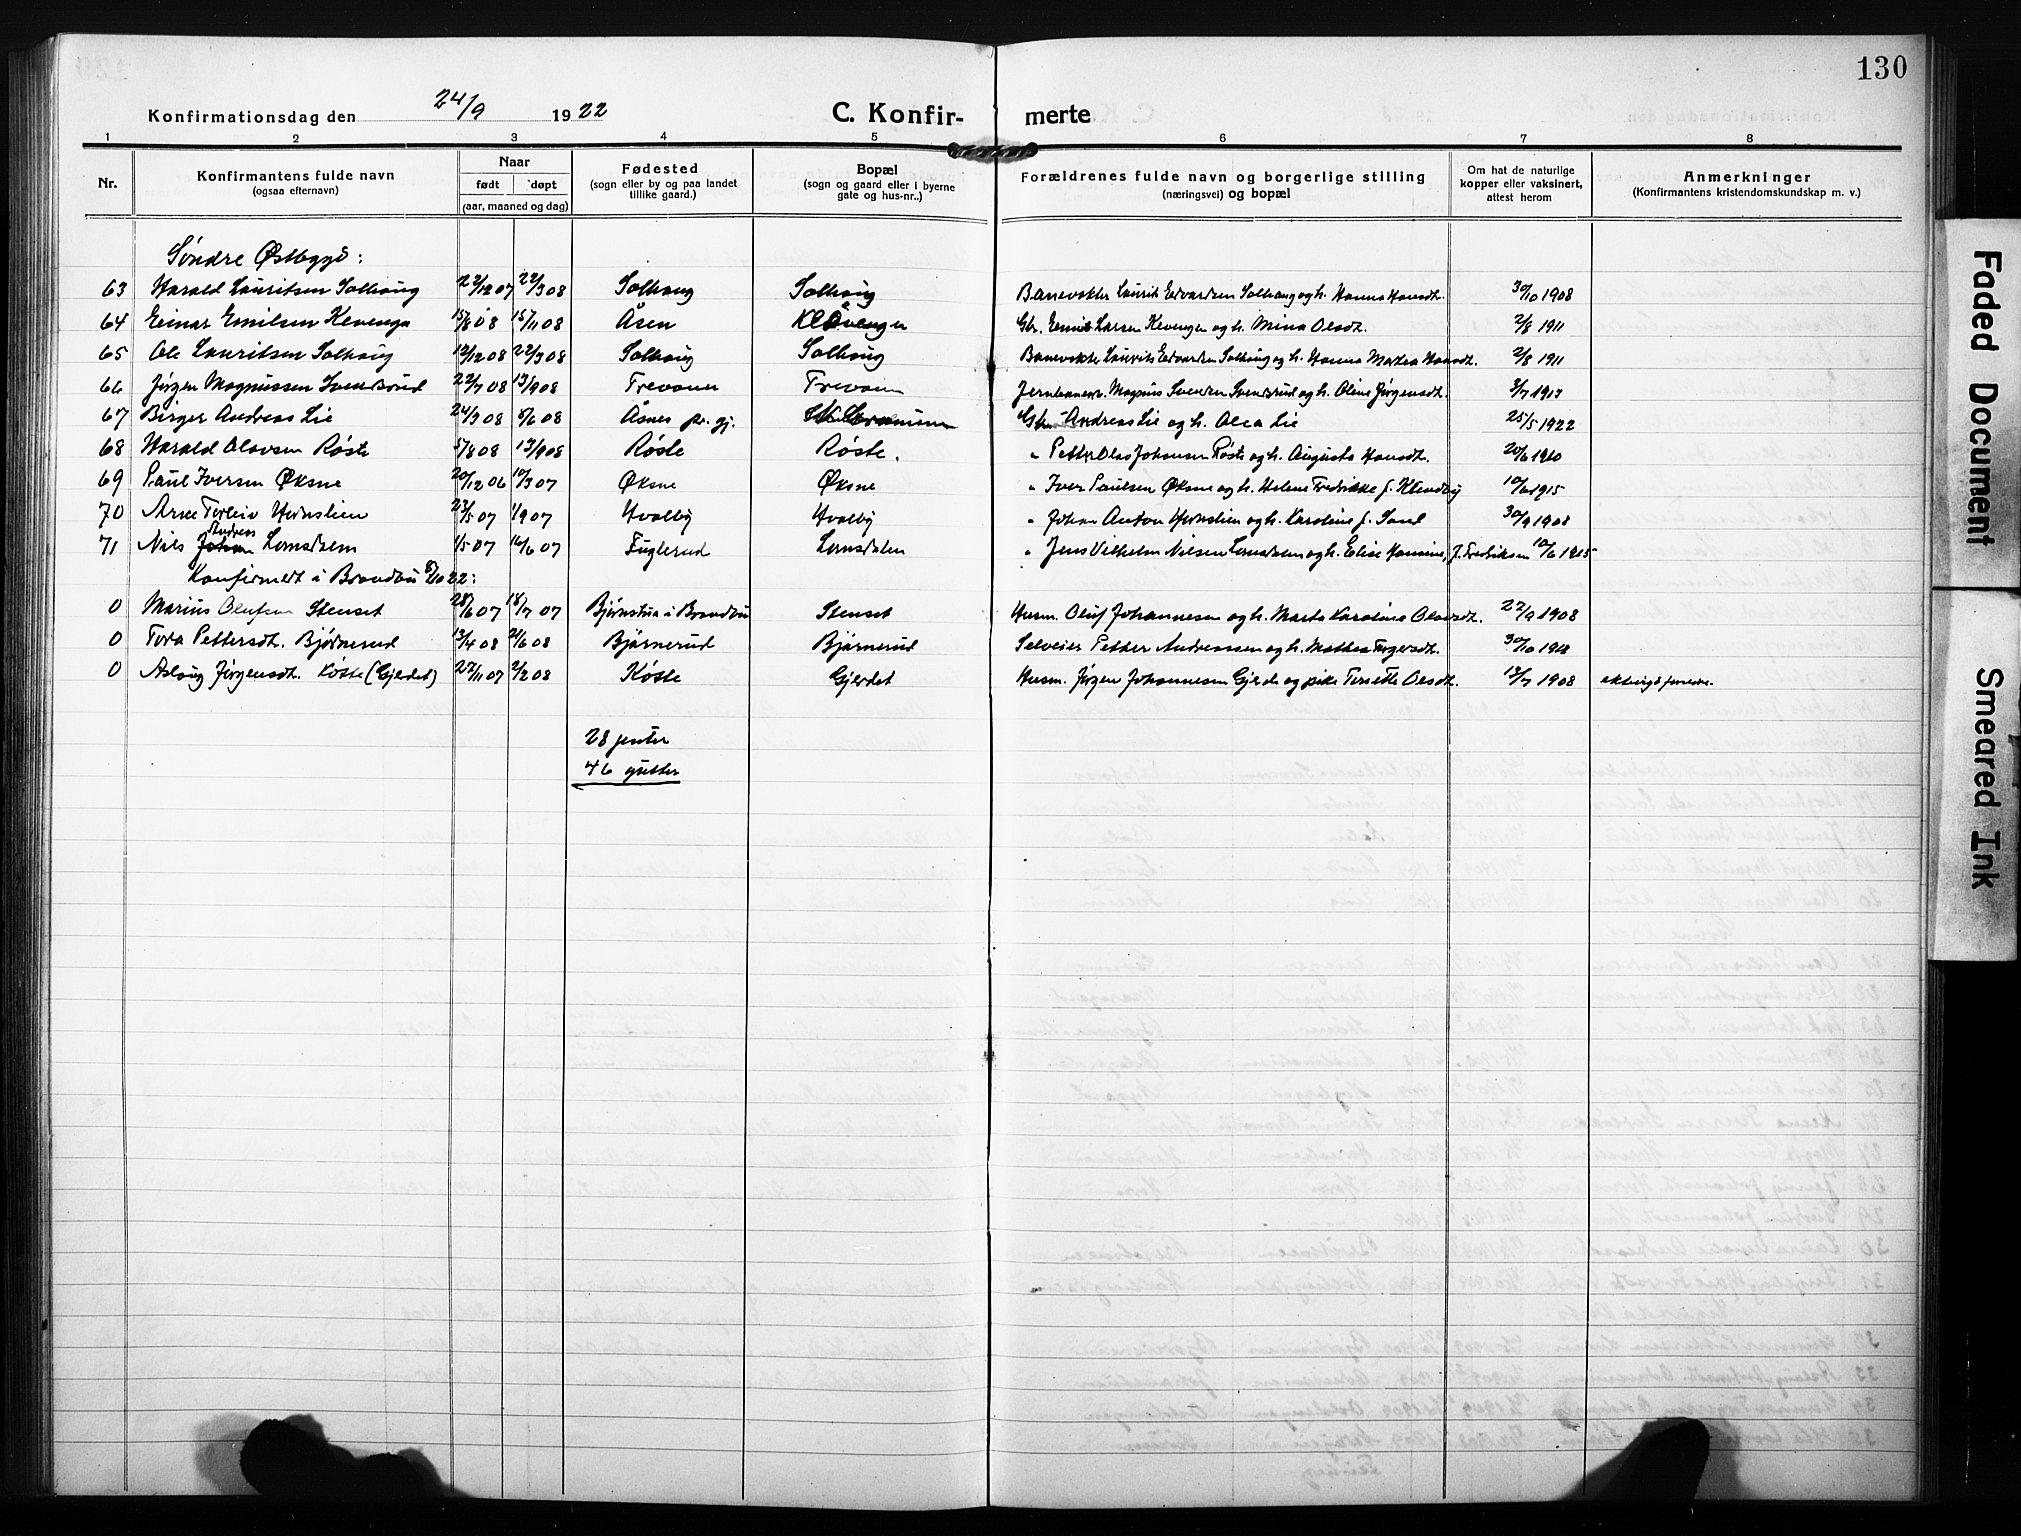 130
Konfirmationsdag den 24/9 1922 C. Konfir- merte
1 2 3 4 5 6 7 8
Nr. Konfirmantens fulde navn (ogsaa efternavn) Naar født døpt (aar, maaned og dag) Fødested (sogn eller by og paa landet tillike gaard.) Bopæl (sogn og gaard eller i byerne gate og hus-nr..) Forældrenes fulde navn og borgerlige stilling (næringsvei) og bopæl Om hat de naturlige kopper eller vaksinert, attest herom Anmerkninger (Konfirmantens kristendomskundskap m. v.)
Søndre Østbygd:
63 Harald Lauritsen Solhaug 22/3 08 Solhaug Solhaug Banevokter Laurits Edvardsen Solhaug og h. Hanna Hansdt. 30/10 1908
64 Einar Emilsen Klevenga 15/8 08 15/11 08 Åsen Gbr. Emil Larsen Klevengen og h. Mina Olsdt. 2/8 1911
65 Ole Lauritsen Solhaug 12/12 08 22/3 08 Solhaug Solhaug Banevokter Laurits Edvardsen Solhaug og h. Hanna Mathea Hansdt. 2/8 1911
66 Jørgen Magnussen Svendsrud 22/7 08 13/9 08 Jernbanearb. Magnus Svendsen Svendsrud og h. Oline Jørgensdt.
67 Birger Andreas Lie 24/3 08 8/6 08 Åsnes pr. gj. Andreas Lie og h. Alea Lie 25/5 1922
68 Harald Olavsen Røste 5/8 08 13/9 08 Røste Røste. " Petter Olas Johansen Røste og h. Augusta Hansdt. 20/6 1910
69 Paul Iversen Øksne 20/12 06 10/3 07 Øksne Øksne " Iver Paulsen Øksne og h. Helene Fredrikke f. Klundby 10/6 1915
70 Arne Torleiv Hernslien 23/5 07 1/9 07 Hvalby Hvalby " Johan Anton Hernslien og h. Karoline f. Sand 30/9 1908
Andreas
71 Nils Johan Lomsdalen 1/5 07 16/6 07 Fuglerud Lomsdalen " Jens Vilhelm Nilsen Lomsdalen og h. Elise Hansine, f. Fredriksen 10/6 1915
Konfirmert i Brandbu 8/10 22:
0 Marius Olufsen Stenset 28/6 07 18/7 07 Bjørnstua i Brandbu Stenset Husm. Oluf Johannesen og h. Marte Karoline Olavsdt. 22/9 1908
0 Tora Pettersdt. Bjørnerud 13/4 08 21/6 08 Bjørnerud Bjørnerud Selveier Petter Andreassen og h. Mathea Torgersdt.
0 Aslaug Jørgensdt. Røste (Gjerdet) 22/11 07 2/2 08 Røste Gjerdet Husm. Jørgen Johannesen Gjerde og pike Olsdt. 13/7 1908
28 jenter
46 gutter
Faded Document
Smeared Ink